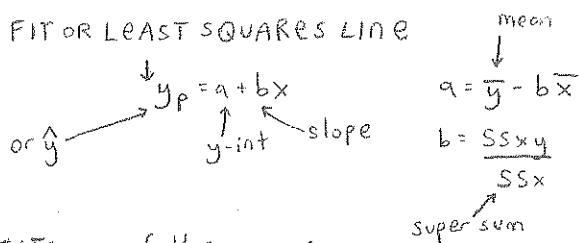 FIT OR LEAST SQUARES LINE
mean
y_p = a + bx
a = y̅ - bx̅
or ŷ
y-int
slope
b = SSxy / SSx
super sum